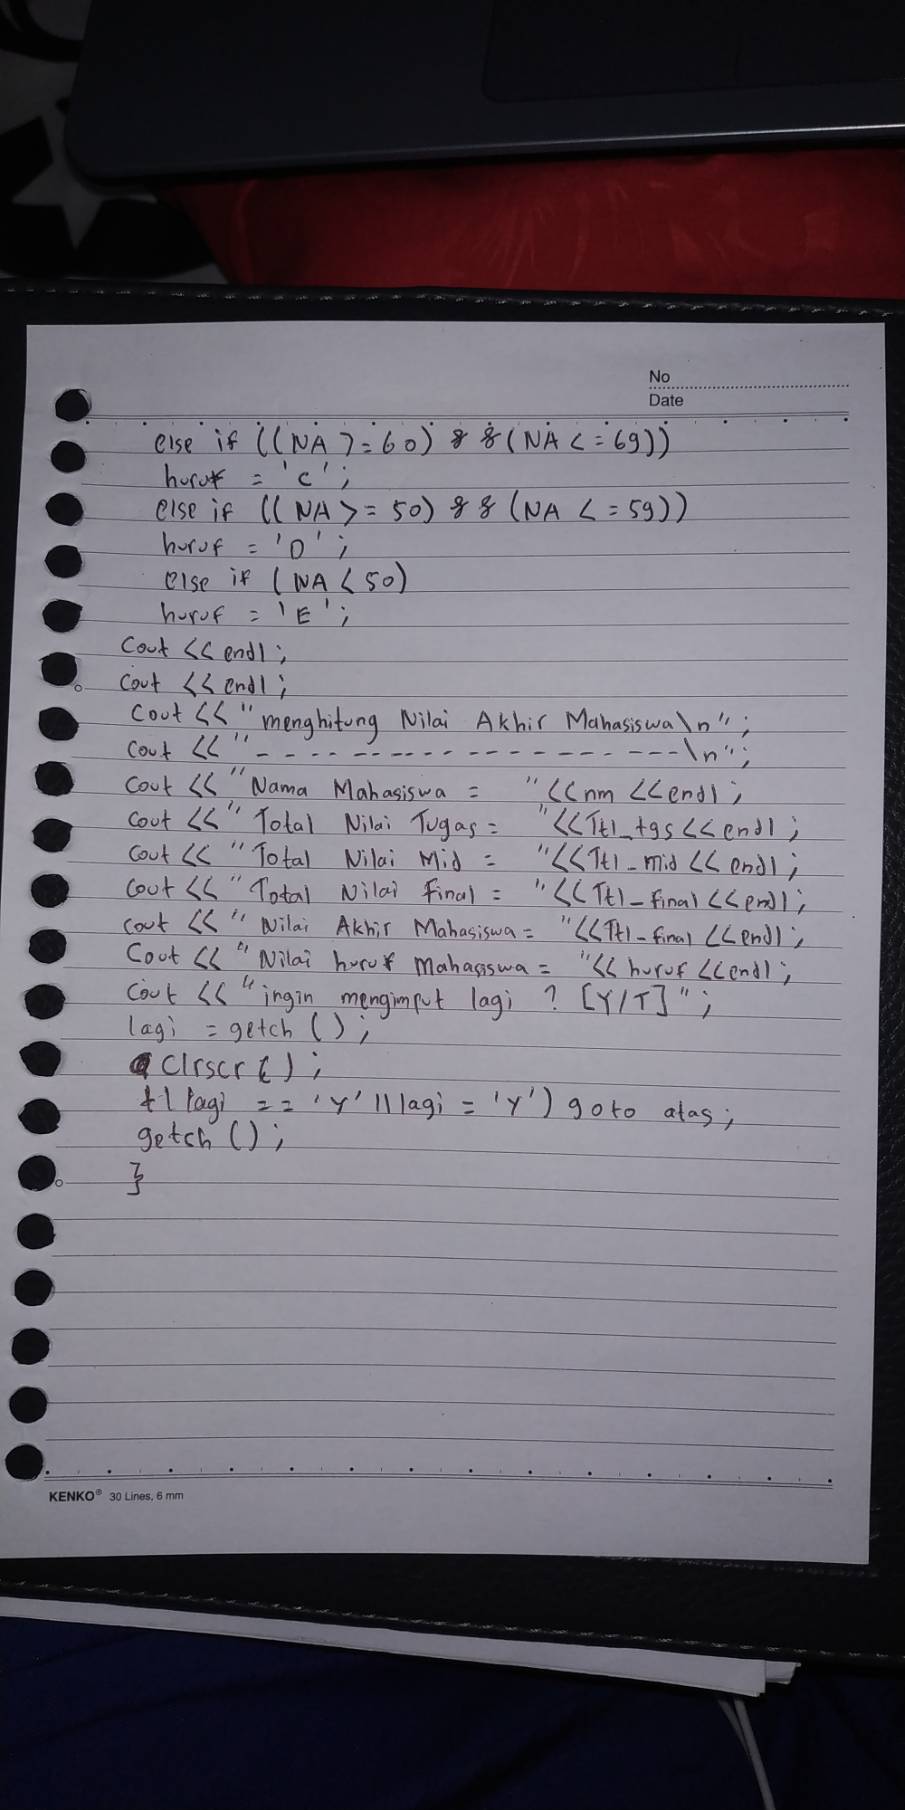 No
Date
else if ((NA >= 60) && (NA <= 69))
huruf = 'C';
else if ((NA >= 50) && (NA <= 59))
huruf = 'D';
else if (NA < 50)
huruf = 'E';
Cout << endl;
Cout << endl;
Cout << "menghitung Nilai Akhir Mahasiswa\n";
Cout << "- - - - - - - - - - - - - - - - - - -\n";
Cout << "Nama Mahasiswa = "<<nm <<endl;
Cout << "Total Nilai Tugas = "<<Ttl_tgs<<endl;
Cout << "Total Nilai Mid = "<<Ttl_mid << endl;
Cout << "Total Nilai Final = "<<Ttl_final<<endl;
cout << "Nilai Akhir Mahasiswa = "<<Ttl_final <<endl;
Cout << "Nilai huruf Mahasiswa = "<< huruf <<endl;
Cout << "ingin mengimput lagi ? [Y/T]";
lagi = getch ();
Clrscr ();
(lagi == 'Y' || lagi = 'Y') goto atas;
getch ();
}
KENKO® 30 Lines, 6 mm